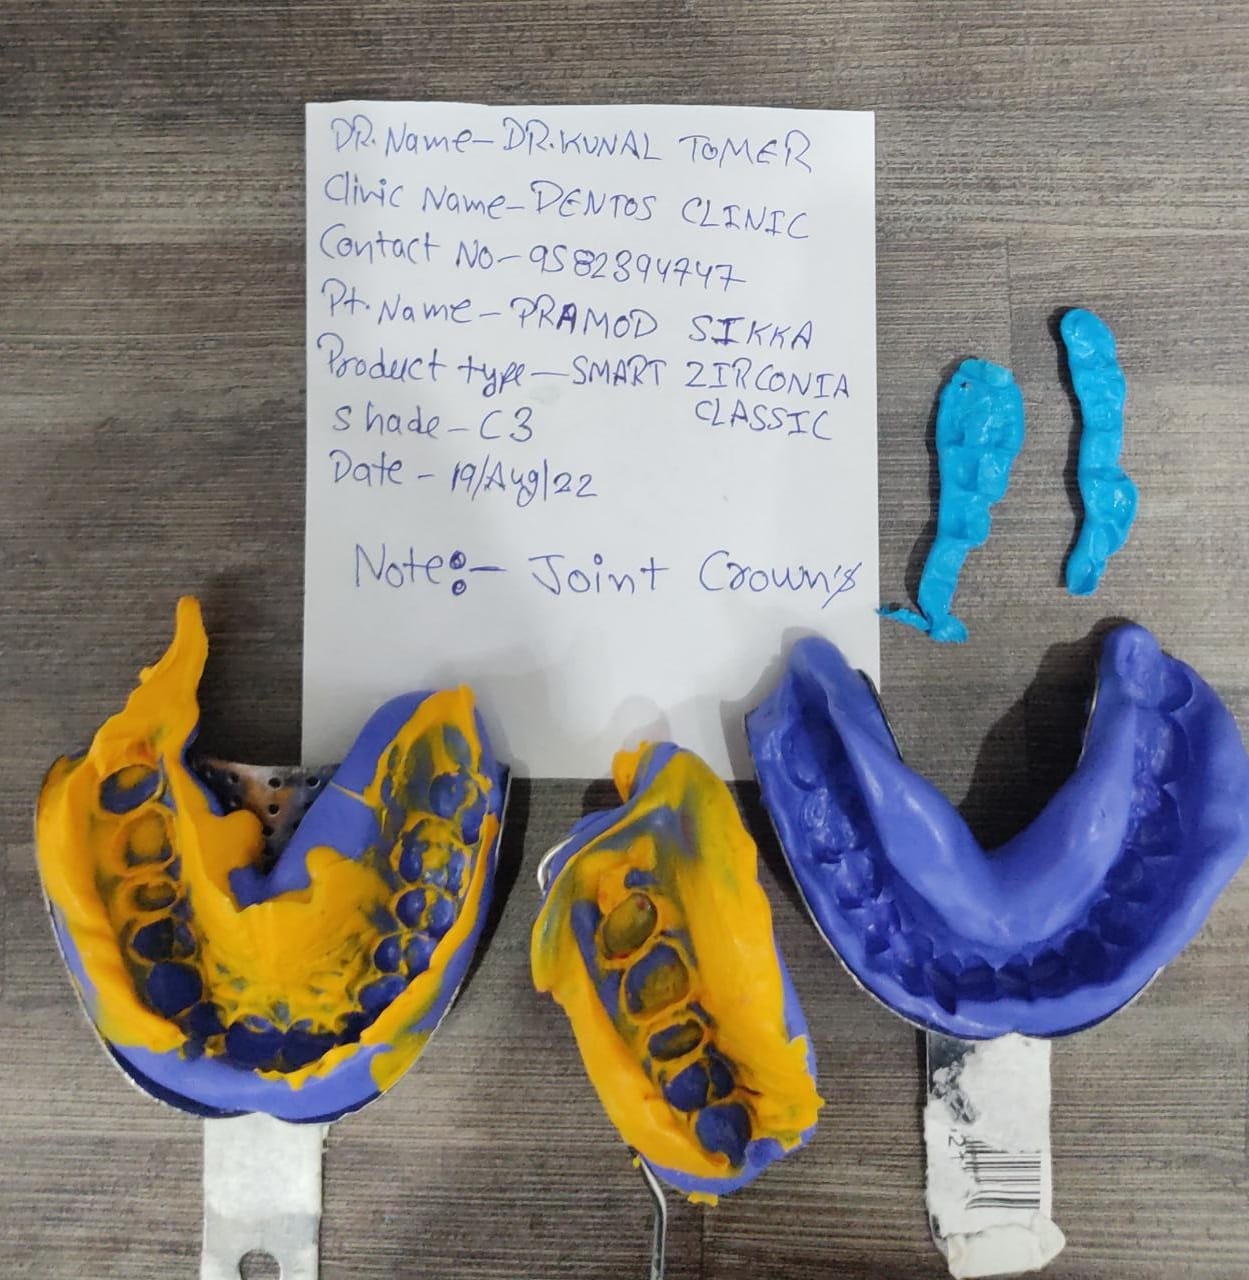 DR. Name - DR. KUNAL TOMER
Clinic Name - DENTOS CLINIC
Contact No - 9582394747
Pt. Name - PRAMOD SIKKA
Product type - SMART ZIRCONIA
CLASSIC
Shade - C3
Date - 19/Aug/22
Note:- Joint Crown's